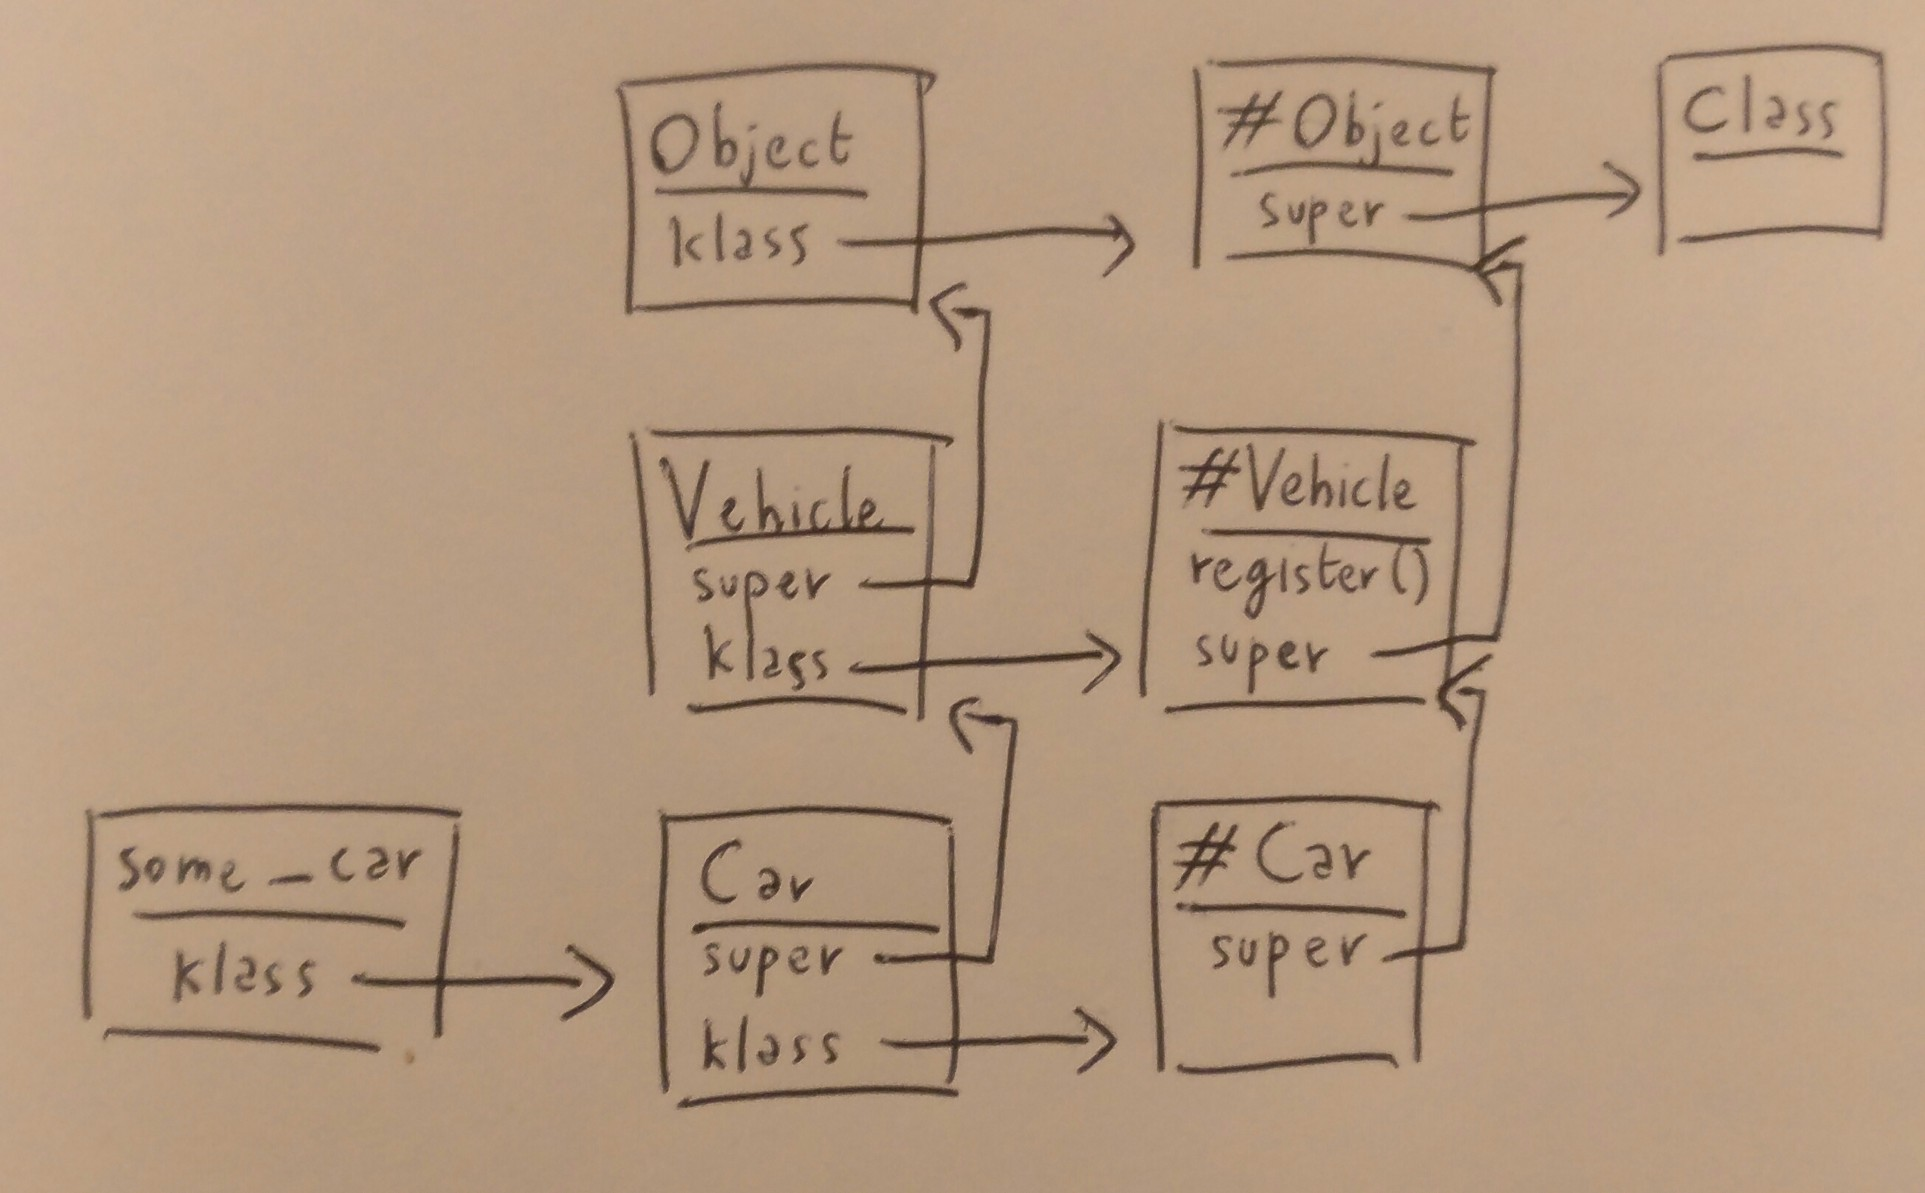 Object
klass
#Object
super
Class
Vehicle
super
klass
#Vehicle
register()
super
some_car
klass
Car
super
klass
#Car
super